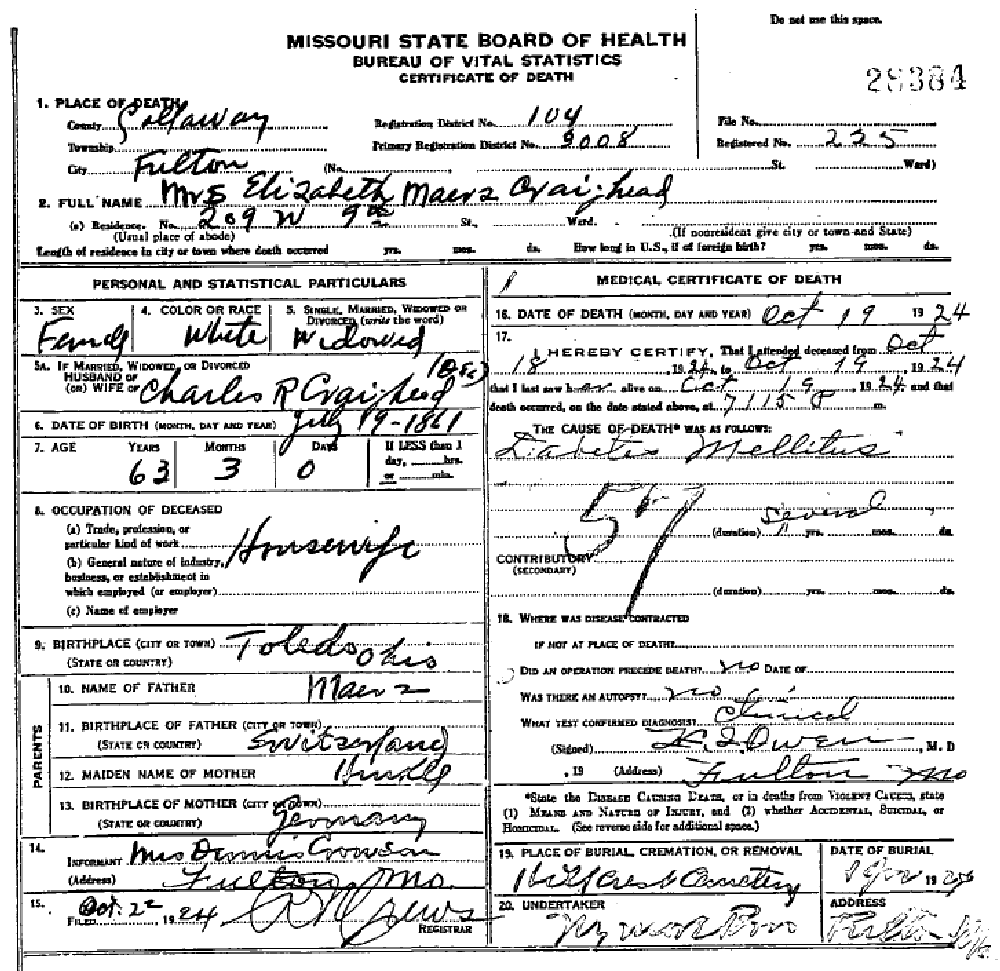 Do not use this space.
MISSOURI STATE BOARD OF HEALTH
BUREAU OF VITAL STATISTICS
CERTIFICATE OF DEATH
29384
1. PLACE OF DEATH
County Callaway Registration District No. 104 File No.
Township Primary Registration District No. 3008 Registered No. 225
City Fulton (No. St. Ward)
2. FULL NAME Mrs Elizabeth Maers Craighead
(a) Residence. No. 209 W 9th St. Ward.
(Usual place of abode) (If nonresident give city or town and State)
Length of residence in city or town where death occurred yrs. mos. ds. How long in U.S., if of foreign birth? yrs. mos. ds.
PERSONAL AND STATISTICAL PARTICULARS
3. SEX 4. COLOR OR RACE 5. SINGLE, MARRIED, WIDOWED OR DIVORCED (write the word)
Female White Widowed
5A. IF MARRIED, WIDOWED, OR DIVORCED
HUSBAND OF
(OR) WIFE OF Charles R Craighead (Dec)
6. DATE OF BIRTH (MONTH, DAY AND YEAR) July 19-1861
7. AGE YEARS MONTHS DAYS If LESS than 1 day, hrs. or min.
63 3 0
8. OCCUPATION OF DECEASED
(a) Trade, profession, or
particular kind of work Housewife
(b) General nature of industry,
business, or establishment in
which employed (or employer)
(c) Name of employer
9. BIRTHPLACE (CITY OR TOWN) Toledo
(STATE OR COUNTRY) Ohio
PARENTS
10. NAME OF FATHER Maers
11. BIRTHPLACE OF FATHER (CITY OR TOWN)
(STATE OR COUNTRY) Switzerland
12. MAIDEN NAME OF MOTHER Hinkle
13. BIRTHPLACE OF MOTHER (CITY OR TOWN)
(STATE OR COUNTRY) Germany
14. INFORMANT Mrs Dennis Crowson
(Address) Fulton, Mo.
15. FILED Oct. 22 1924 REGISTRAR
MEDICAL CERTIFICATE OF DEATH
16. DATE OF DEATH (MONTH, DAY AND YEAR) Oct 19 1924
17. I HEREBY CERTIFY, That I attended deceased from Oct
18, 1924, to Oct 19, 1924
that I last saw her alive on Oct 19, 1924, and that
death occurred, on the date stated above, at 7:15 P m.
THE CAUSE OF DEATH* WAS AS FOLLOWS:
Diabetes Mellitus
57
(duration) several yrs. mos. ds.
CONTRIBUTORY
(SECONDARY)
(duration) yrs. mos. ds.
18. WHERE WAS DISEASE CONTRACTED
IF NOT AT PLACE OF DEATH?
DID AN OPERATION PRECEDE DEATH? no DATE OF
WAS THERE AN AUTOPSY? no
WHAT TEST CONFIRMED DIAGNOSIS? Clinical
(Signed) Owen, M. D
, 19 (Address) Fulton Mo
*State the DISEASE CAUSING DEATH, or in deaths from VIOLENT CAUSES, state
(1) MEANS AND NATURE OF INJURY, and (2) whether ACCIDENTAL, SUICIDAL, or
HOMICIDAL. (See reverse side for additional space.)
19. PLACE OF BURIAL, CREMATION, OR REMOVAL DATE OF BURIAL
Hillcrest Cemetery 19
20. UNDERTAKER ADDRESS
Fulton